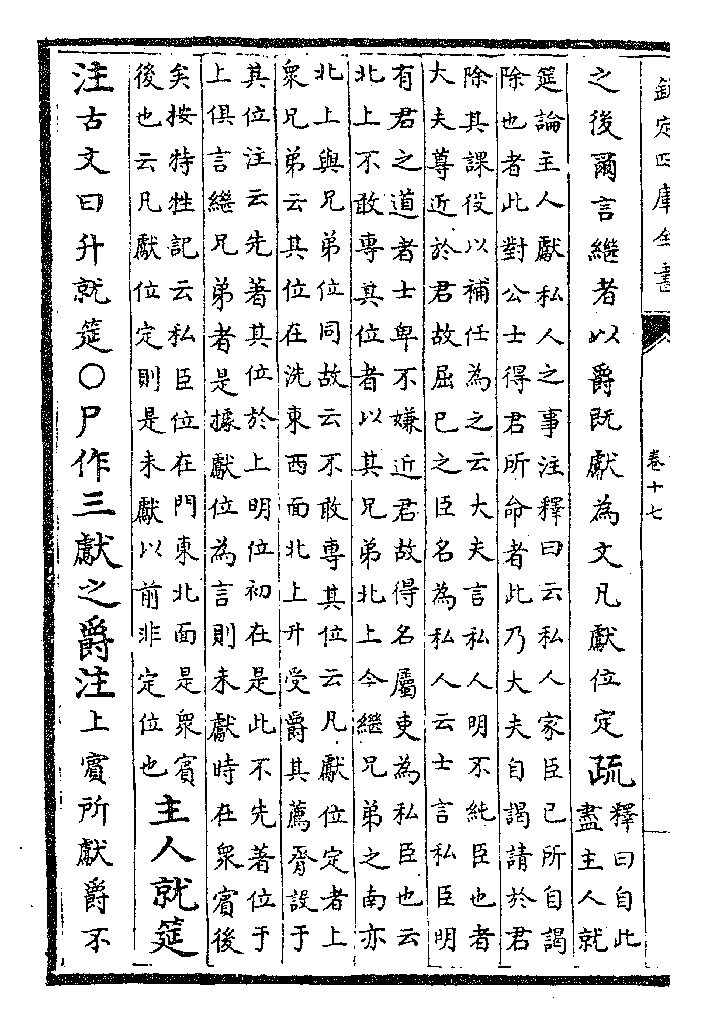 欽定四庫全書
卷十七
之後爾言繼者以爵既獻為文凡獻位定疏釋曰自此
盡主人就
筵論主人獻私人之事注釋曰云私人家臣已所自謁
除也者此對公士得君所命者此乃大夫自謁請於君
除其課役以補任為之云大夫言私人明不純臣也者
大夫尊近於君故屈已之臣名為私人云士言私臣明
有君之道者士卑不嫌近君故得名屬吏為私臣也云
北上不敢專其位者以其兄弟北上今繼兄弟之南亦
北上與兄弟位同故云不敢專其位云凡獻位定者上
衆兄弟云其位在洗東西面北上升受爵其薦脀設于
其位注云先著其位於上明位初在是此不先著位于
上俱言繼兄弟者是據獻位為言則未獻時在衆賓後
矣按特牲記云私臣位在門東北面是衆賓
後也云凡獻位定則是未獻以前非定位也
主人就筵
注古文曰升就筵〇尸作三獻之爵注上賓所獻爵不